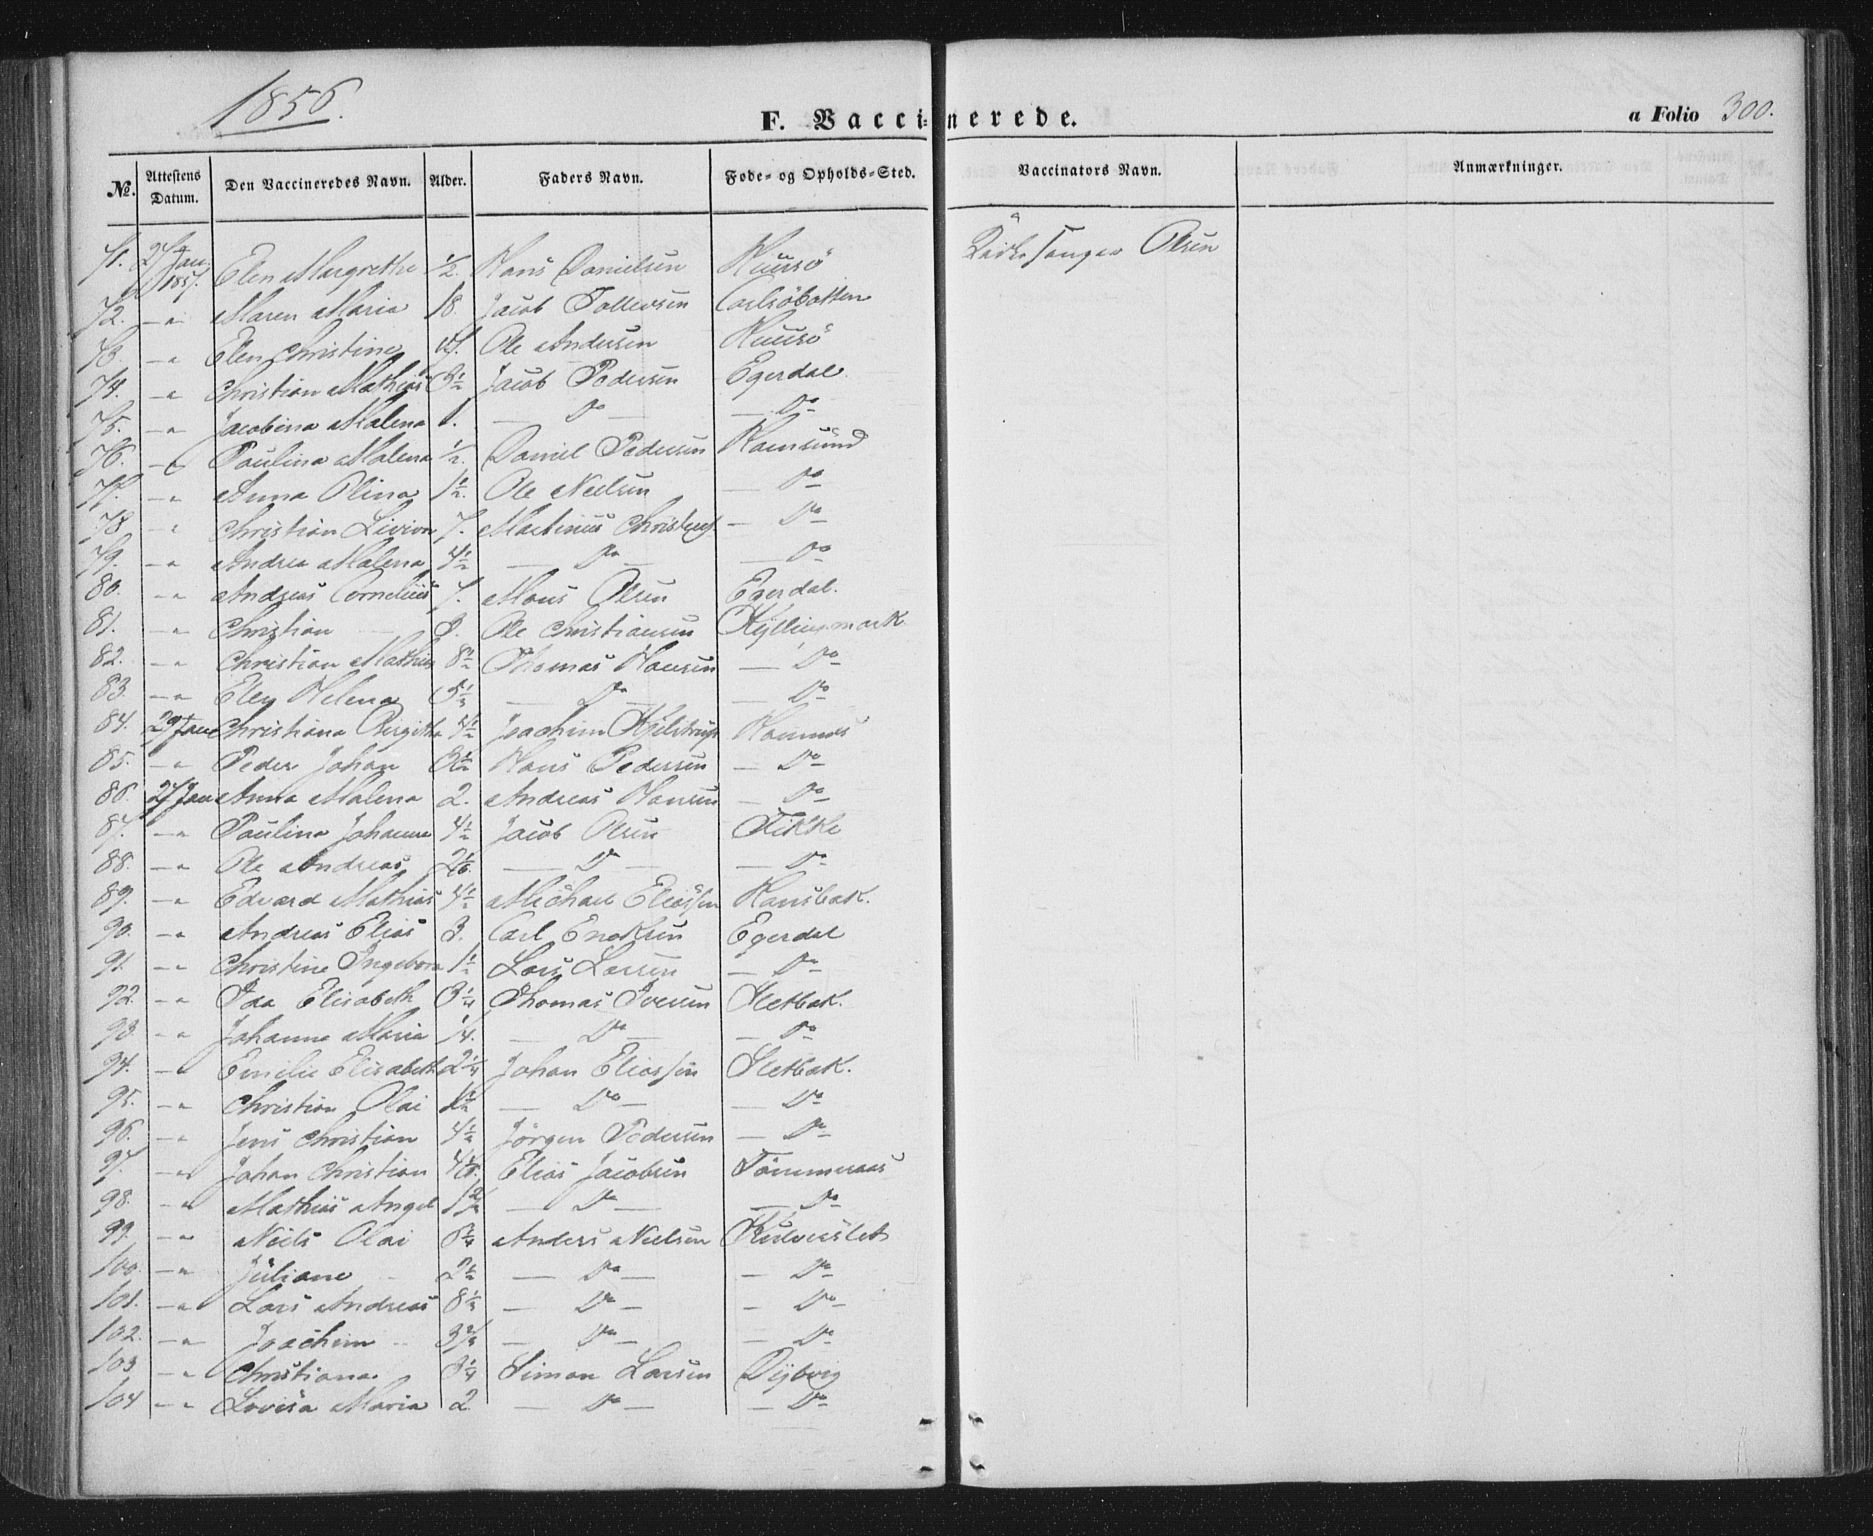 1856.
F. Vaccinerede.
a Folio 300.
No. Attestens Datum. Den Vaccineredes Navn. Alder. Faders Navn. Føde- og Opholds-Sted. Vaccinators Navn. Anmærkninger.
71. 27 Jan. 1857. Elen Margrethe 1/2. Hans Danielsen Kuusö Olsen
72. -"- Maren Maria 18. Jacob Tollevsen
73. -"- Elen Christine Ole Andersen Kuusö
74. -"- Christian Mathias 3 1/2 Jacob Pedersen Egerdal
75. -"- Jacobina Malena 1. — Do — — Do —
76. -"- Paulina Malena 1/2. Daniel Pedersen Ramsund
77. -"- Anna Olina 1 1/2. Ole Nielsen — Do —
78. -"- Christian 7. Martinus — Do —
79. -"- Andrea Malena 4 1/2 — Do — — Do —
80. -"- Andreas Cornelius 7. Mons Olsen Egerdal.
81. -"- Christian Ole Christiansen Kyllingmark
82. -"- Christian Mathias 8 1/2 Thomas Hansen — Do —
83. -"- Elen Helena — Do — — Do —
84. 29 Jan Christiana Birgitha 4 1/2 Joachim Kjelstrup
85. -"- Peder Johan 3 1/2 Hans Pedersen — Do —
86. 27 Jan Anna Malena 2. Andreas Hansen — Do —
87. -"- Paulina Johanna 4 1/2 Jacob Olsen
88. -"- Ole Andreas — Do — — Do —
89. -"- Edvard Mathias 4 1/2 Michael Eliassen
90. -"- Andreas Elias 3. Carl Enoksen Egerdal
91. -"- Christine Ingebora 1 1/2 Lars Larsen — Do —
92. -"- Ida Elisabeth 3 1/4 Thomas Iversen Sletbak.
93. -"- Johanna Maria 1/4. — Do — — Do —
94. -"- Emilie Elisabeth 2 1/4 Johan Eliassen Sletbak.
95. -"- Christian Olai — Do — — Do —
96. -"- Jens Christian 4 1/2 Jörgen Pedersen — Do —
97. -"- Johan Christian Elias Jacobsen Tömmeraas
98. -"- Mathias Angel — Do — — Do —
99. -"- Niels Olai Anders Nielsen
100. -"- Juliane 2 1/2 — Do — — Do —
101. -"- Lars Andreas — Do — — Do —
102. -"- Joachim — Do — — Do —
103 -"- Christiana. 3 1/4 Simon Larsen Dybvig
104 -"- Lovisa Maria 2 — Do — — Do —